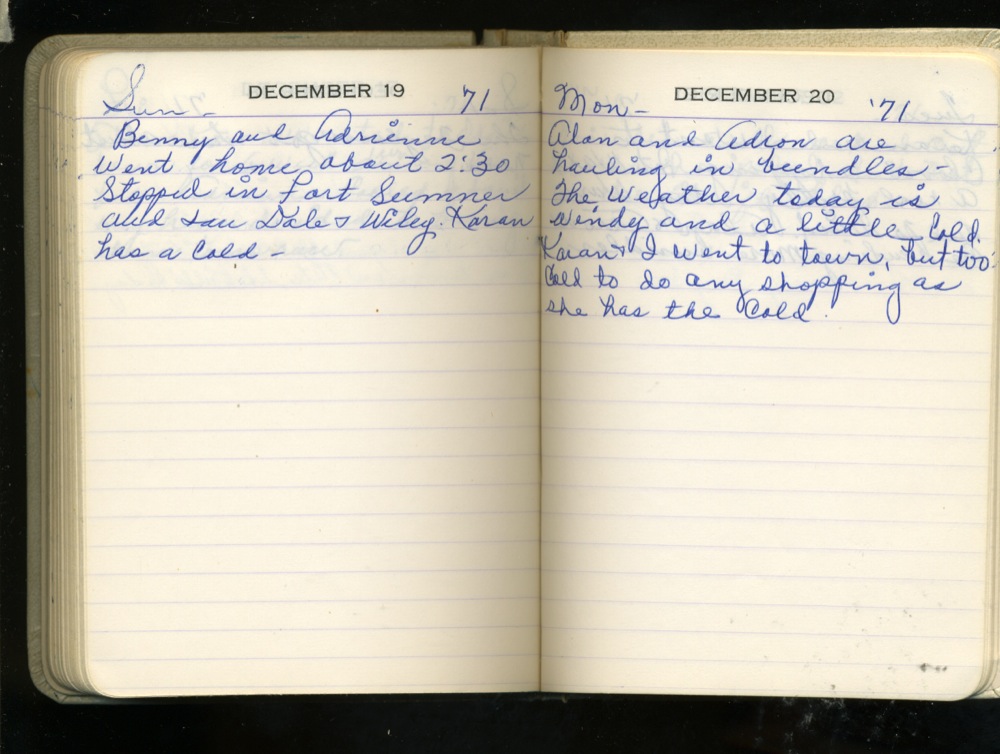 Sun - DECEMBER 19 71
Benny and Adrienne
went home about 2:30
Stopped in Fort Sumner
and saw Dale & Wiley. Karan
has a cold -
Mon - DECEMBER 20 '71
Alan and Adron are
hauling in bundles -
The Weather today is
windy and a little cold.
Karan & I went to town, but too
cold to do any shopping as
she has the cold.